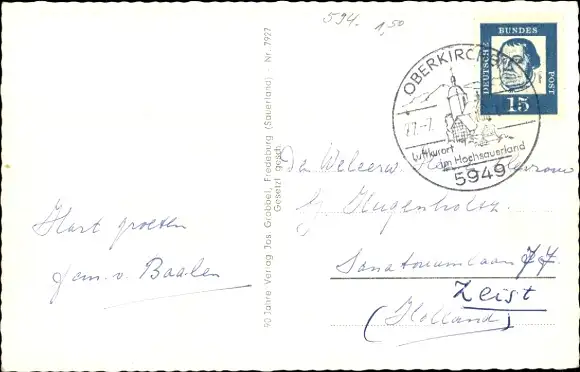 594.
1,50
DEUTSCHE
BUNDES
POST
15
OBERKIRCHEN
27.-7.
Luftkurort
im Hochsauerland
5949
90 Jahre Verlag Jos. Grobbel, Fredeburg (Sauerland) - Nr. 7927
Gesetzl. gesch.
Hart. groeten
fam. v. Baalen
Den Weleerw. Heer Mevrouw
Hugenholtz
Sanatoriumlaan
Zeist
(Holland)